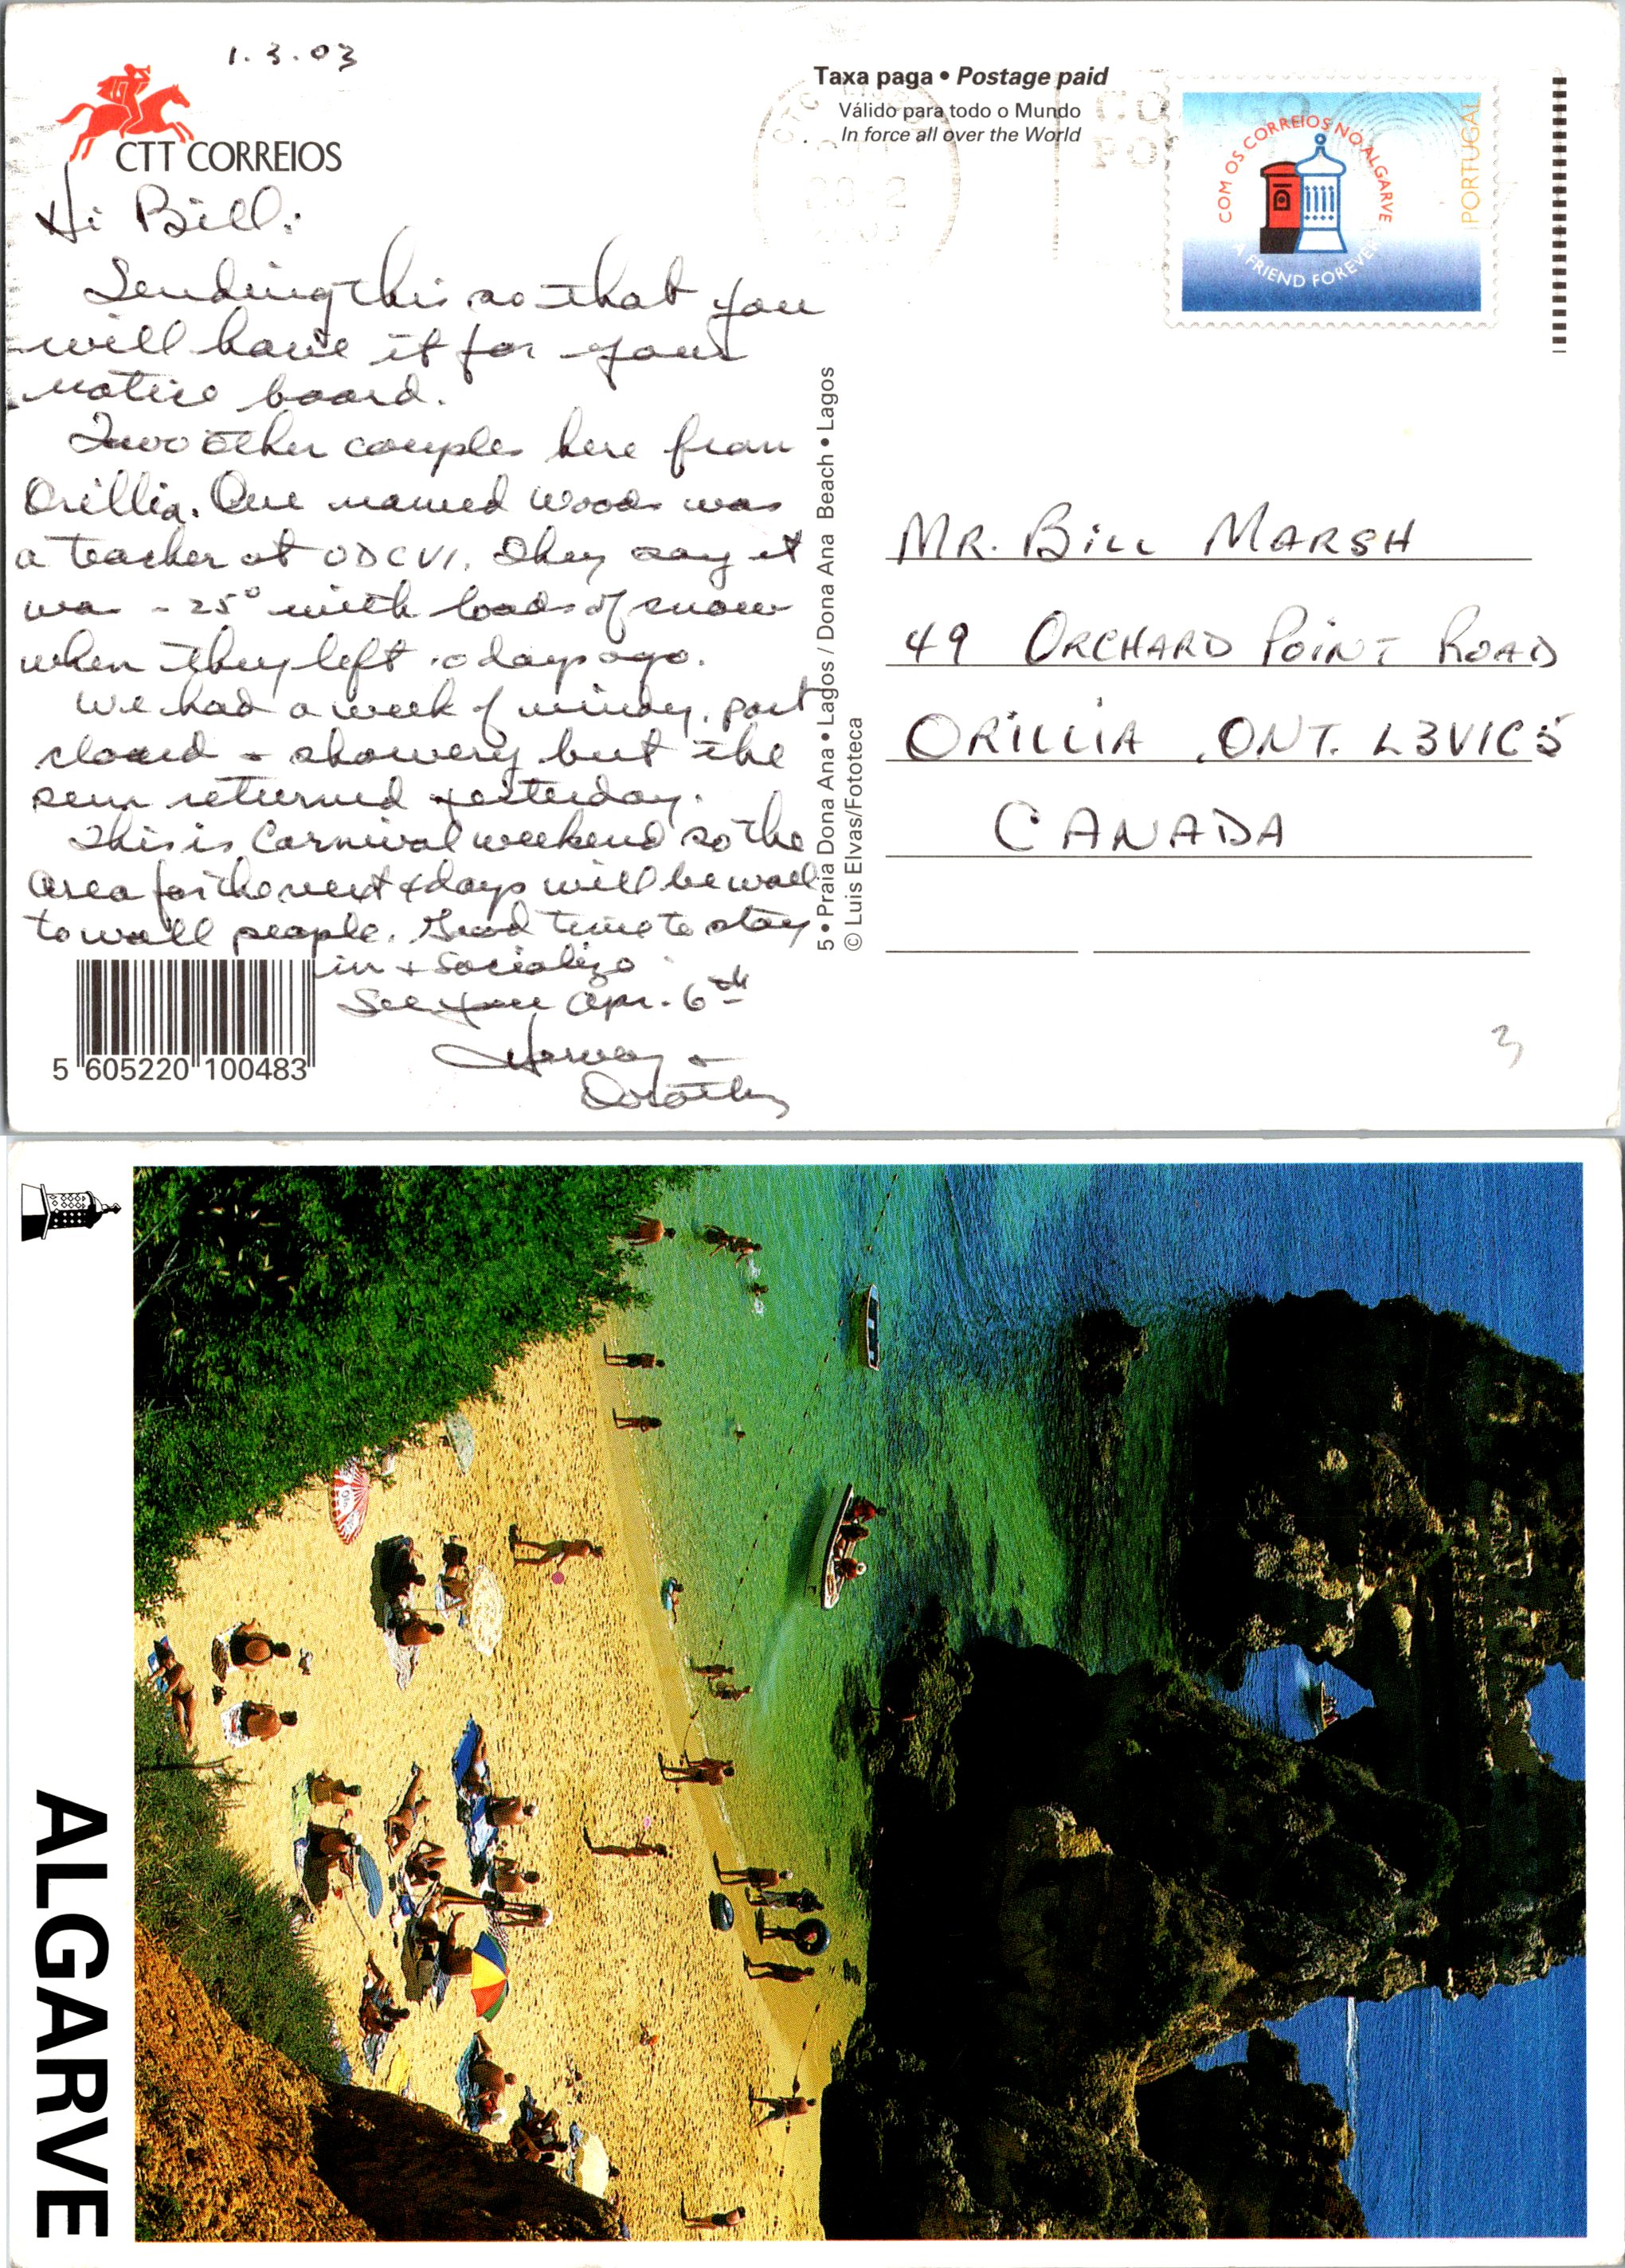 1.3.03
CTT CORREIOS
Hi Bill:
Sending this so that you
will have it for your
notice board.
Two other couples here from
Orillia. One named Woods was
a teacher at ODCVI. They say it
was - 25° with loads of snow
when they left 10 days ago.
We had a week of windy, part
cloud + showery but the
sun returned yesterday.
This is Carnival weekend so the
area for the next 4 days will be wall
to wall people. Good time to stay
in + socialize.
See you Apr. 6th
Harvey +
Dorothy
5 605220 100483
Taxa paga • Postage paid
Válido para todo o Mundo
In force all over the World
COM OS CORREIOS NO ALGARVE
A FRIEND FOREVER
PORTUGAL
5 • Praia Dona Ana • Lagos / Dona Ana Beach • Lagos
© Luis Elvas/Fototeca
MR. BILL MARSH
49 ORCHARD POINT ROAD
ORILLIA, ONT. L3V1C5
CANADA
3
ALGARVE